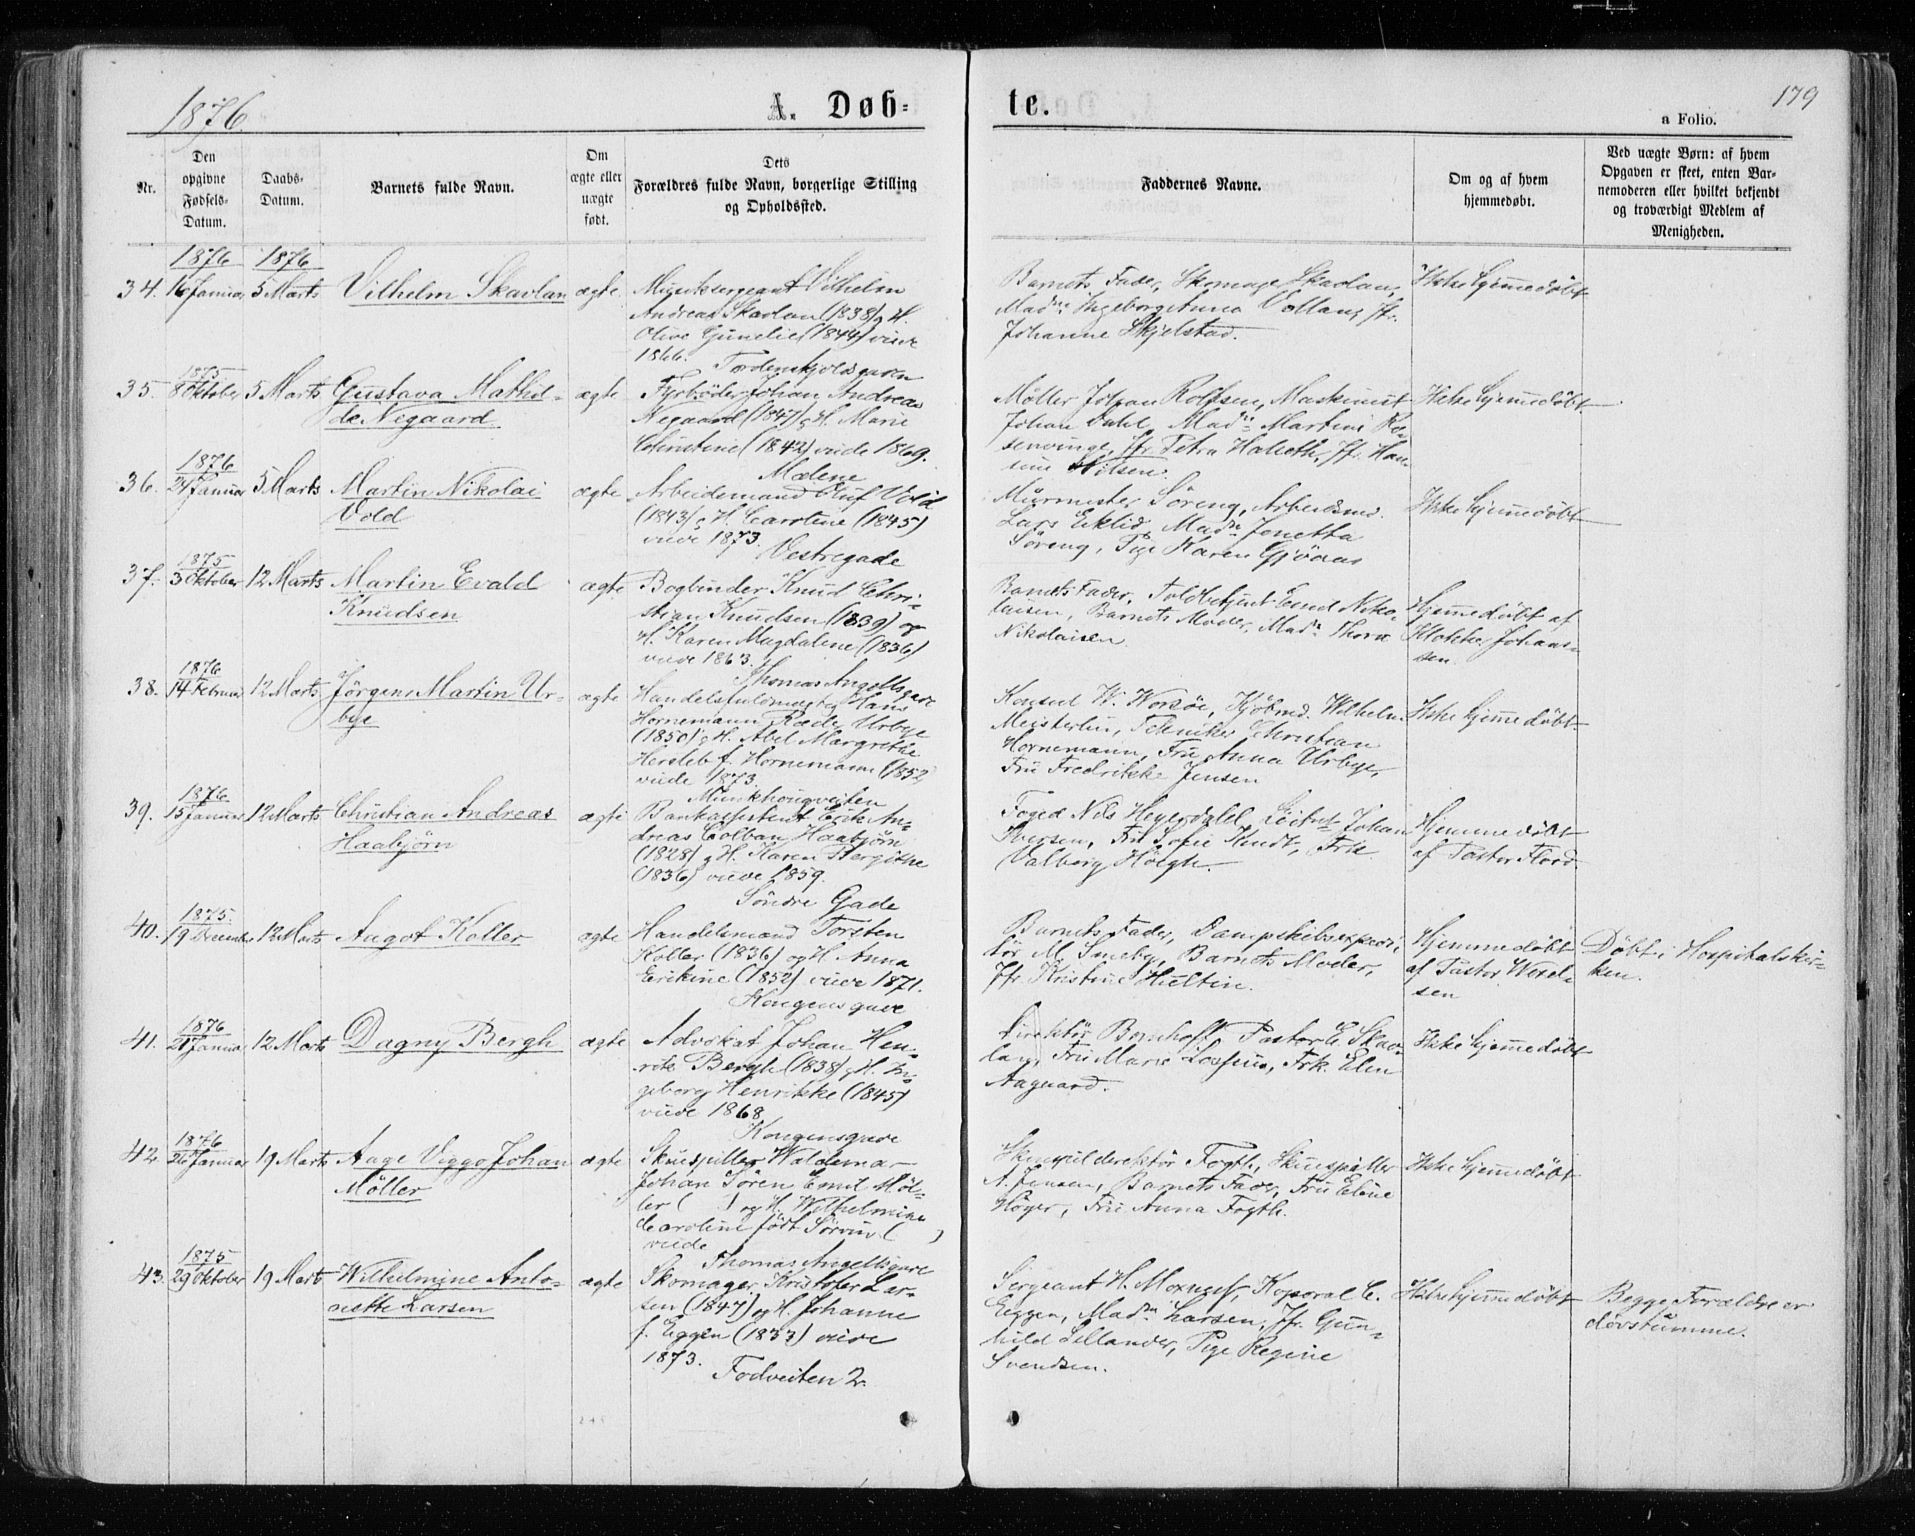 1876
A. Døb-
te.
179
a Folio.
Nr.
Den opgivne Fødsels-Datum.
Daabs-Datum.
Barnets fulde Navn.
Om ægte eller uægte født.
Dets Forældres fulde Navn, borgerlige Stilling og Opholdssted.
Faddernes Navne.
Om og af hvem hjemmedøbt.
Ved uægte Børn: af hvem Opgaven er skeet, enten Barnemoderen eller hvilket bekjendt og troværdigt Medlem af Menigheden.
1876 1876
34. 16 Januar 5 Marts Vilhelm Skavlan ægte
Musiksergeant Vilhelm
Andreas Skavlan (1838) g H.
Olive Gunelie (1844) viede
1866.
Tordenskjoldsgaden
Barnets Fader, Skomager Skavlan,
Madm Ingeborg Anna Vollan, Jfr.
Johanne Skjelstad.
Ikke hjemmedøbt
1875
35. 8 Oktober 5 Marts Gustava Mathil-
de Negaard
ægte
Fyrbøder Johan Andreas
Negaard (1847) g H. Marie
Christine (1842) viede 1869.
Mælene
Møller Johan Rolfsen, Maskinist
Johan Dahl, Madm Martine Ro-
senvinge, Jfr Petra Halseth, Jfr. Han-
sine Nilsen.
Ikke hjemmedøbt
1876
36. 24 Januar 5 Marts Martin Nikolai
Vold
ægte
Arbeidsmand Oluf Vold
(1843) g H. Carotine (1845)
viede 1873.
Vestregade
Murmester Søreng, Arbeidsmd.
Lars Eklid, Madm Jonetta
Søreng, Pige Karen Gjøraas
Ikke hjemmedøbt
1875
37. 3 Oktober 12 Marts Martin Evald
Knudsen
ægte
Bogbinder Knud Chri-
stian Knudsen (1839) og
H. Karen Magdalene (1836)
viede 1863.
Thomas Angellsgade
Barnets Fader, Toldbetjent Niko-
laisen, Barnets Moder, Madm Thora
Nikolaisen.
Hjemmedøbt af
Klokker Johan-
sen.
1876
38. 14 Februar 12 Marts Jørgen Martin Ur-
bye
ægte
Handelsfuldmægtig Hans
Hornemann Rode Urbye
(1850) g H. Abel Margrethe
Hersleb f. Hornemann (1852
viede 1873.
Munkhougveiten
Konsul W. Worsøe, Kjøbmd. Wilhelm
Meisterlin, Tekniker Christian
Hornemann, Fru Anna Urbye,
Fru Fredrikke Jensen
Ikke hjemmedøbt
1876
39. 15 Januar 12 Marts Christian Andreas
Haabjørn
ægte
Bankassistent Erik An-
dreas Colban Haabjørn
(1828) g H. Karen Bergithe
(1836) viede 1859.
Søndre Gade
Foged Nils Heyerdahl, Løitnt Johan
Iversen, Frk Sofie Kindt, Frk
Valborg Høegh.
Hjemmedøbt
af Pastor Flood.
1875.
40. 19 December 12 Marts Angot Koller
ægte
Handelsmand Torsten
Koller (1836) og H. Anna
Erikine (1852) viede 1871.
Kongensgade
Barnets Fader, Dampskibsexpedi-
tør M. Smeby, Barnets Moder,
Jfr Kristine Hultin.
Hjemmedøbt
af Pastor Wexel-
sen
Døbt i Hospitalskir-
ken.
1876
41. 21 Januar 12 Marts Dagny Bergh
ægte
Advokat Johan Hen-
rik Bergh (1838) g H. In-
geborg Henrikke (1845)
viede 1868
Kongensgade
Direktør Bernhoft, Pastor E. Skav-
lan, Fru Marie Lossius, Frk. Elen
Aagaard.
Ikke hjemmedøbt
1876
42. 26 Januar 19 Marts Aage Viggo Johan
Møller
ægte
Skuespiller Waldemar
Johan Søren Emil Møl-
ler ( ) og H. Wilhelmine
Caroline født ( )
viede
Thomas Angellsgade
Skuespildirektør Fogth, Skuespiller
A. Jensen, Barnets Fader, Fru Eline
Høyer, Fru Anna Fogth.
Ikke hjemmedøbt
1875
43. 29 Oktober 19 Marts Wilhelmine Anto-
nette Larsen
ægte
Skomager Kristofer Lar-
sen (1847) og H. Johanne
f. Eggen (1833) viede
1873.
Fodveiten 2.
Sergeant H. Moxness, Korporal C.
Eggen, Madm Larsen, Jfr. Gun-
hild Lillander, Pige Regine
Svendsen.
Ikke hjemmedøbt
Begge Forældre er
døvstumme.